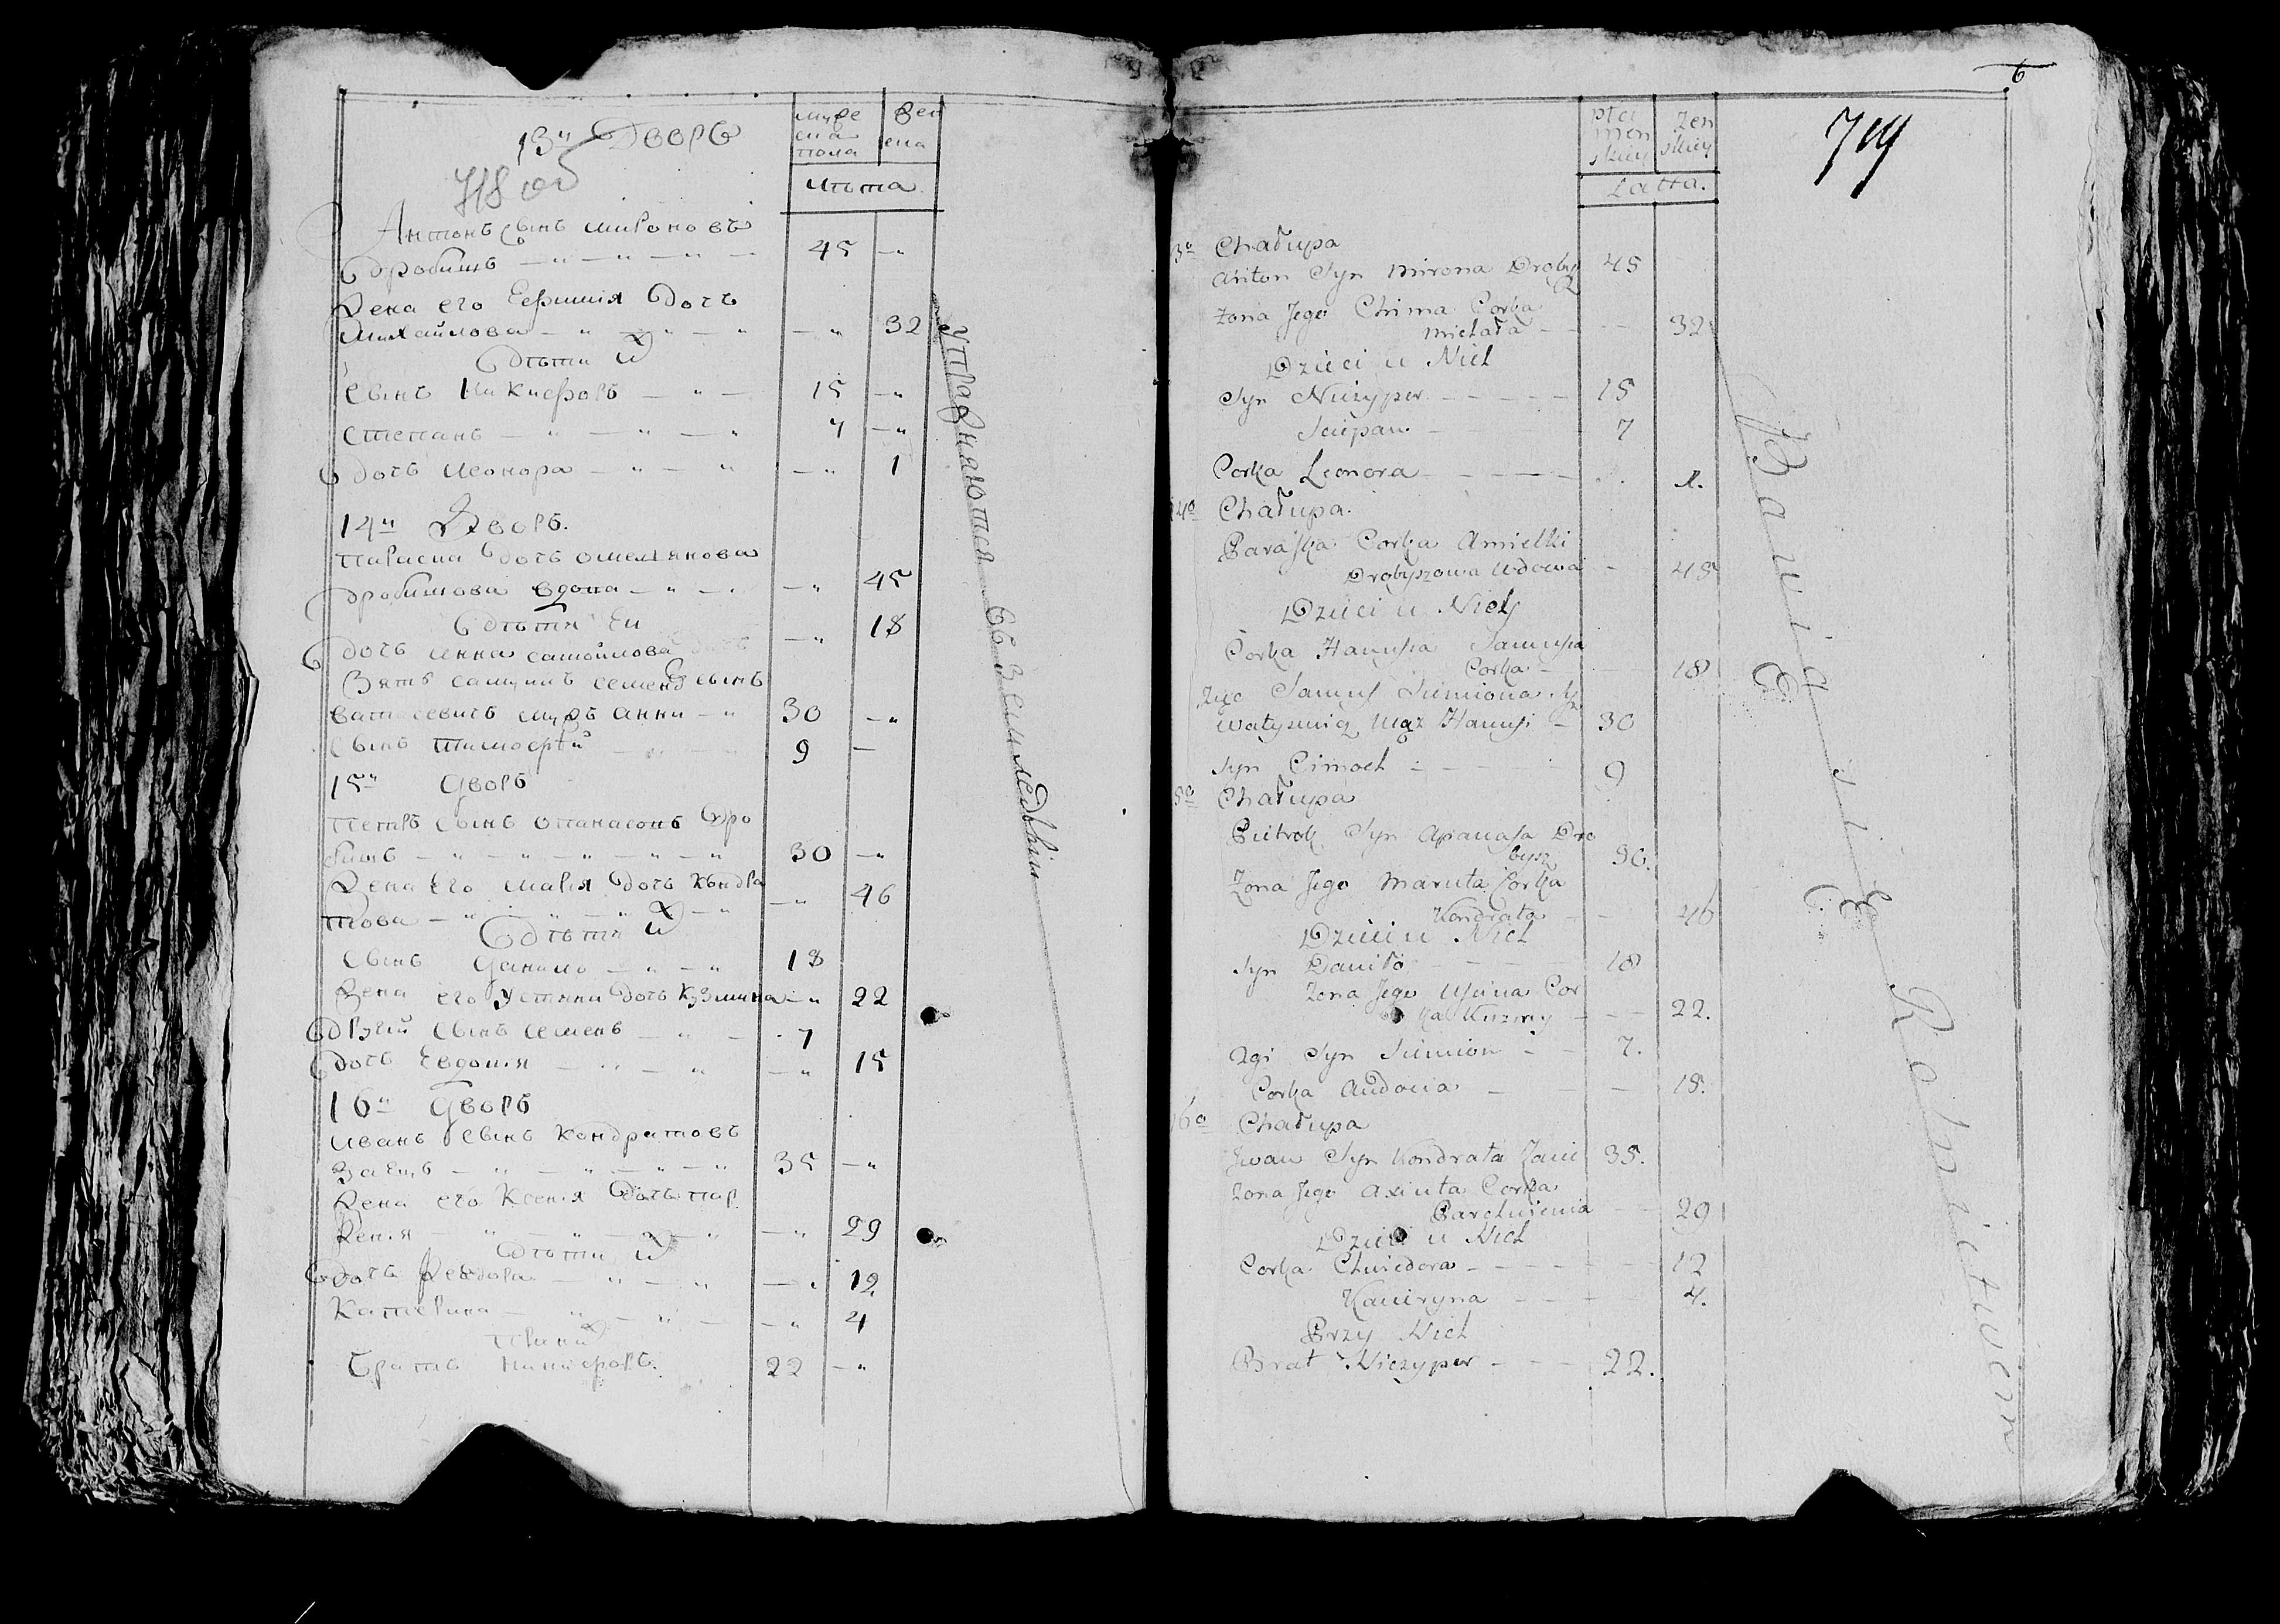 13й Дворъ
718 об
муже
ска
пола
жен
ска
лѣта
Антонъ сынъ Мироновъ
Дробышъ — " — " — " —
45 — "
Жена его Евфимия дочъ
Михайлова — " — " — "
— " 32
Дѣти их
сынъ Никифоръ — " — 15 — "
Степанъ — " — " — " 7 — "
дочъ Леонора — " — " — " 1
14й Дворъ.
Параска дочъ Омелянова
Дробышова вдова — " — " — " 45
Дѣти еи
дочъ Анна Самойлова — " 18
Зять Самуилъ Семенъ сынъ
Ватасевичъ мужъ Анни — " 30 — "
сынъ Тимофей 9 —
15й Дворъ
Петръ сынъ Опанасовъ Дро
бышъ — " — " — " — " — " 30 — "
Жена его Мария дочъ Кондра
това — " — " — " — " — " 46
Дѣти их
сынъ Данило — " — " 18
Жена его Устина дочъ Кузмина — " 22
Другий сынъ Семенъ — " — 7
дочъ Евдокия — " — " — " 15
16й Дворъ
Иванъ сынъ Кондратовъ
Заецъ — " — " — " — " 35 — "
Жена его Ксения дочъ Пар
хения — " — " — " — " — " 29
Дѣти их
дочъ Федора — " — " — " 12
Катерина — " — " — — " 4
При них
братъ Никифоръ. 22 — "
упражняются въ земледѣлии
6
719
płci
męn
skiey
żen
skiey
Latta.
13o Chałupa
Anton Syn Mirona Droby
sz
45
Zona Jego Chima Corka
Michała — — — 32
Dzieci u Nich
Syn Niczyper — — — — — 15
Sciepan — 7
Corka Leonora — — — — — 1.
14o Chałupa.
Paraska Corka Amielki
Drobyszowa Wdowa — 45
Dzieci u Niey
Corka Hanusia Samusia
Corka — — 18
Zięć Samuś Siemiona Syn
Watyszewicz Mąż Hanusi — 30
Syn Cimoch — — — — 9
15o Chałupa
Pietrok Syn Apanasa Dro
bysz 30.
Zona Jego Maruta Corka
Kondrata — — 46
Dzieci u Nich
Syn Daniło — — — — 18
Zona Jego Uścina Cor
ka Kuzmy — — — 22.
2gi Syn Siemion — — 7.
Corka Audocia — — — 15.
16o Chałupa
Jwan Syn Kondrata Zaiec 35.
Zona Jego Axiuta Corka
Parchwienia — — 29
Dzieci u Nich
Corka Chwiedora — — — — — 12
Kaciryna — — — — 4.
Przy Nich
Brat Niczyper — — — 22.
Bawią się Rolnictwem